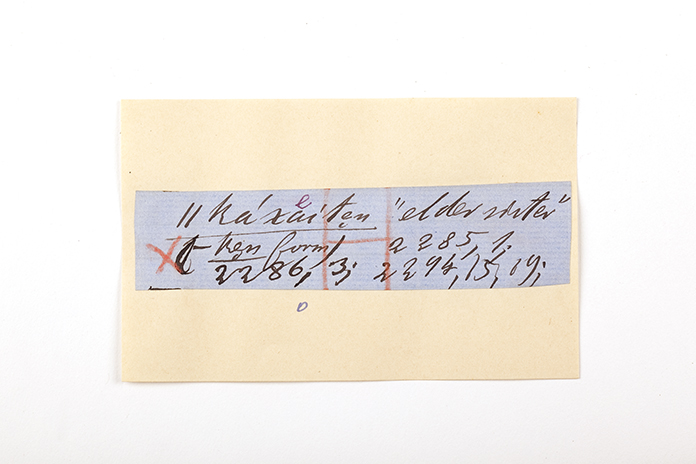 11 ká'xåitęn "elder sister"
e
t-kęn form 2285, 1.
2286, 3; 2294, 15, 19;
o